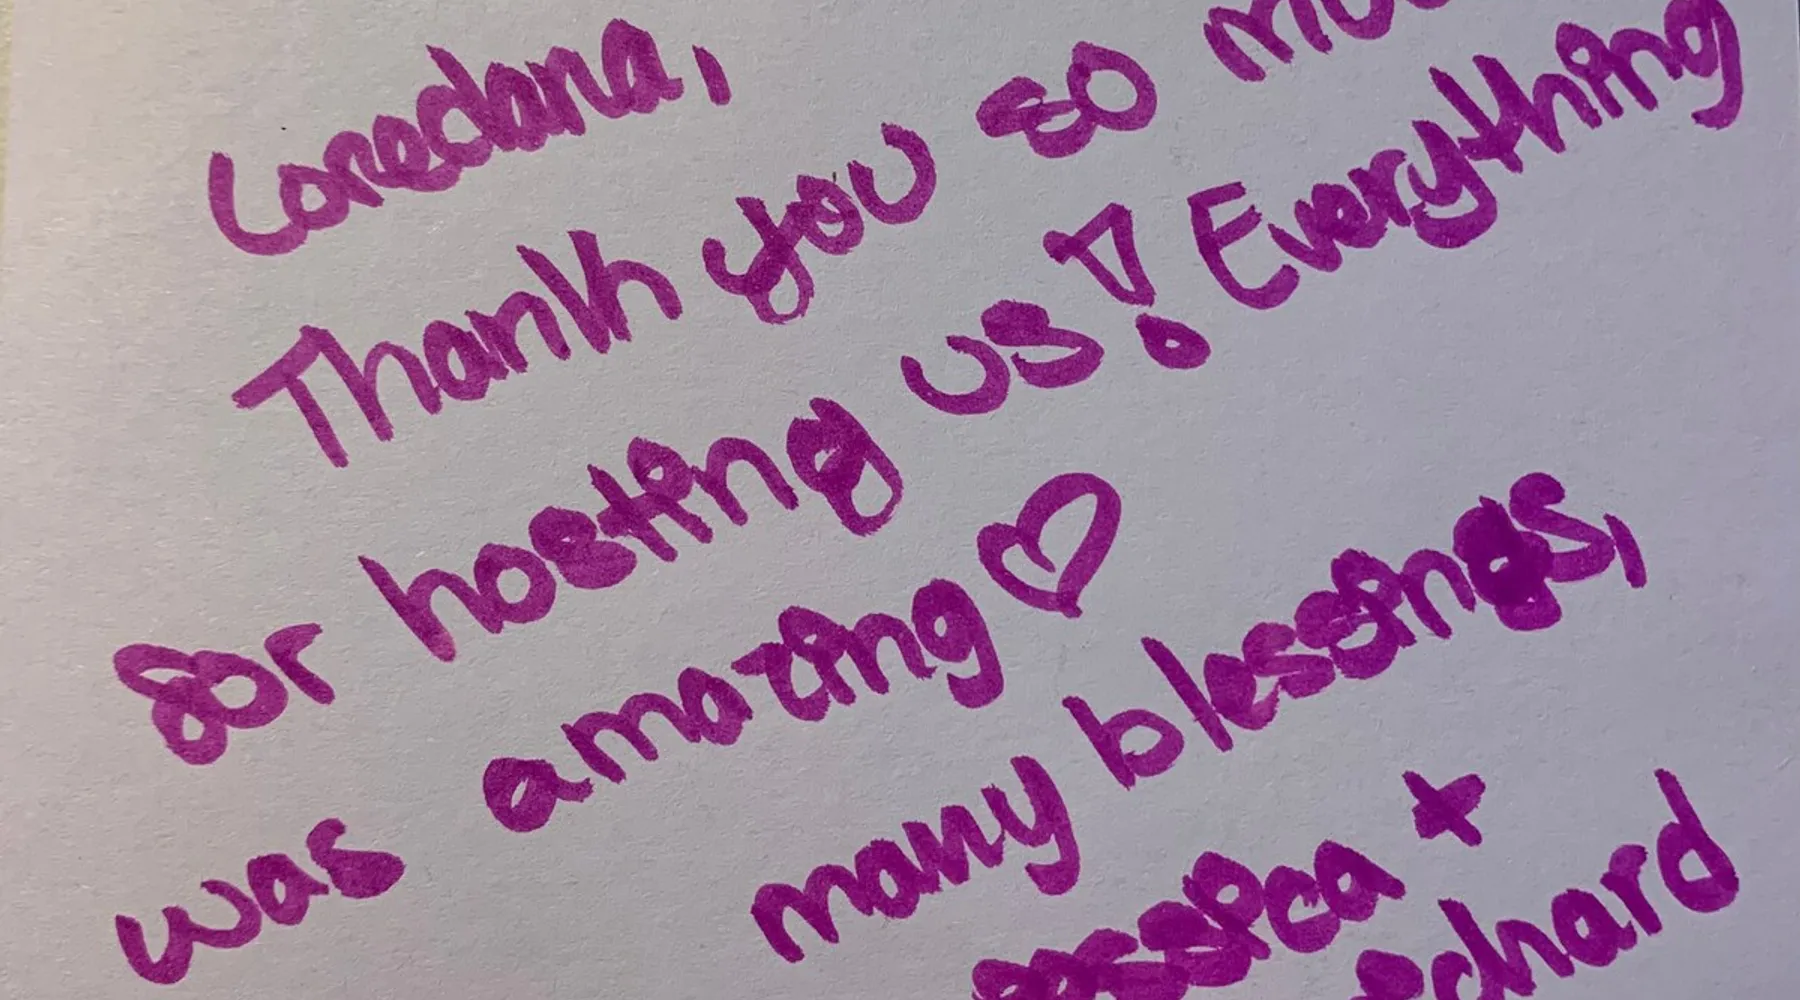 Loredana,
Thank you so muc
for hosting us! Everything
was amazing ♡
many blessings,
essica +
ichard